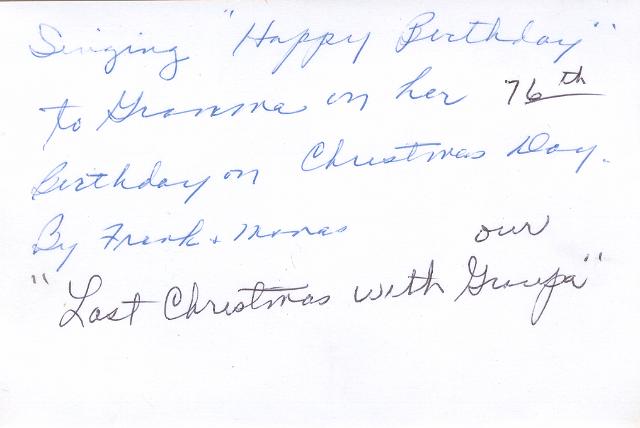 Singing "Happy Birthday"
to Gramma on her 76th
Birthday on Christmas Day.
By Frank + Monas
our
"Last Christmas with Grampa"